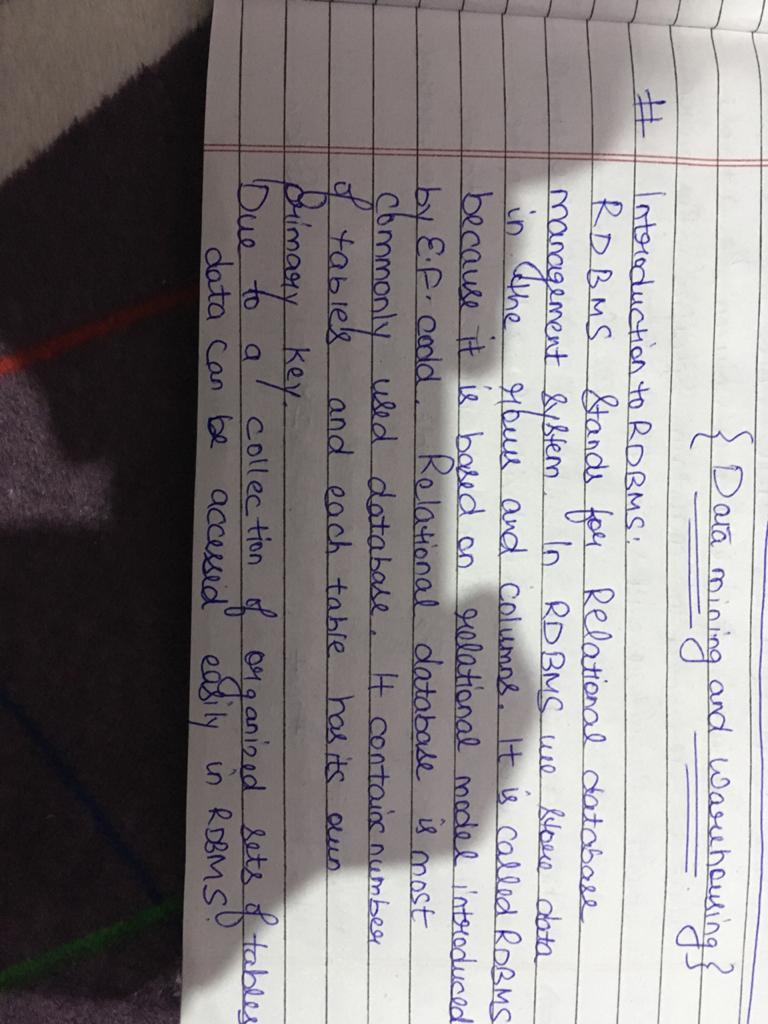 { Data mining and warehousing }
# Introduction to RDBMS:
RDBMS stands for Relational database
management system. In RDBMS we store data
in the rows and columns. It is called RDBMS
because it is based on relational model introduced
by E.F. codd. Relational database is most
commonly used database. It contains number
of tables and each table has its own
Primary key.
Due to a collection of organized sets of tables
data can be accessed easily in RDBMS.